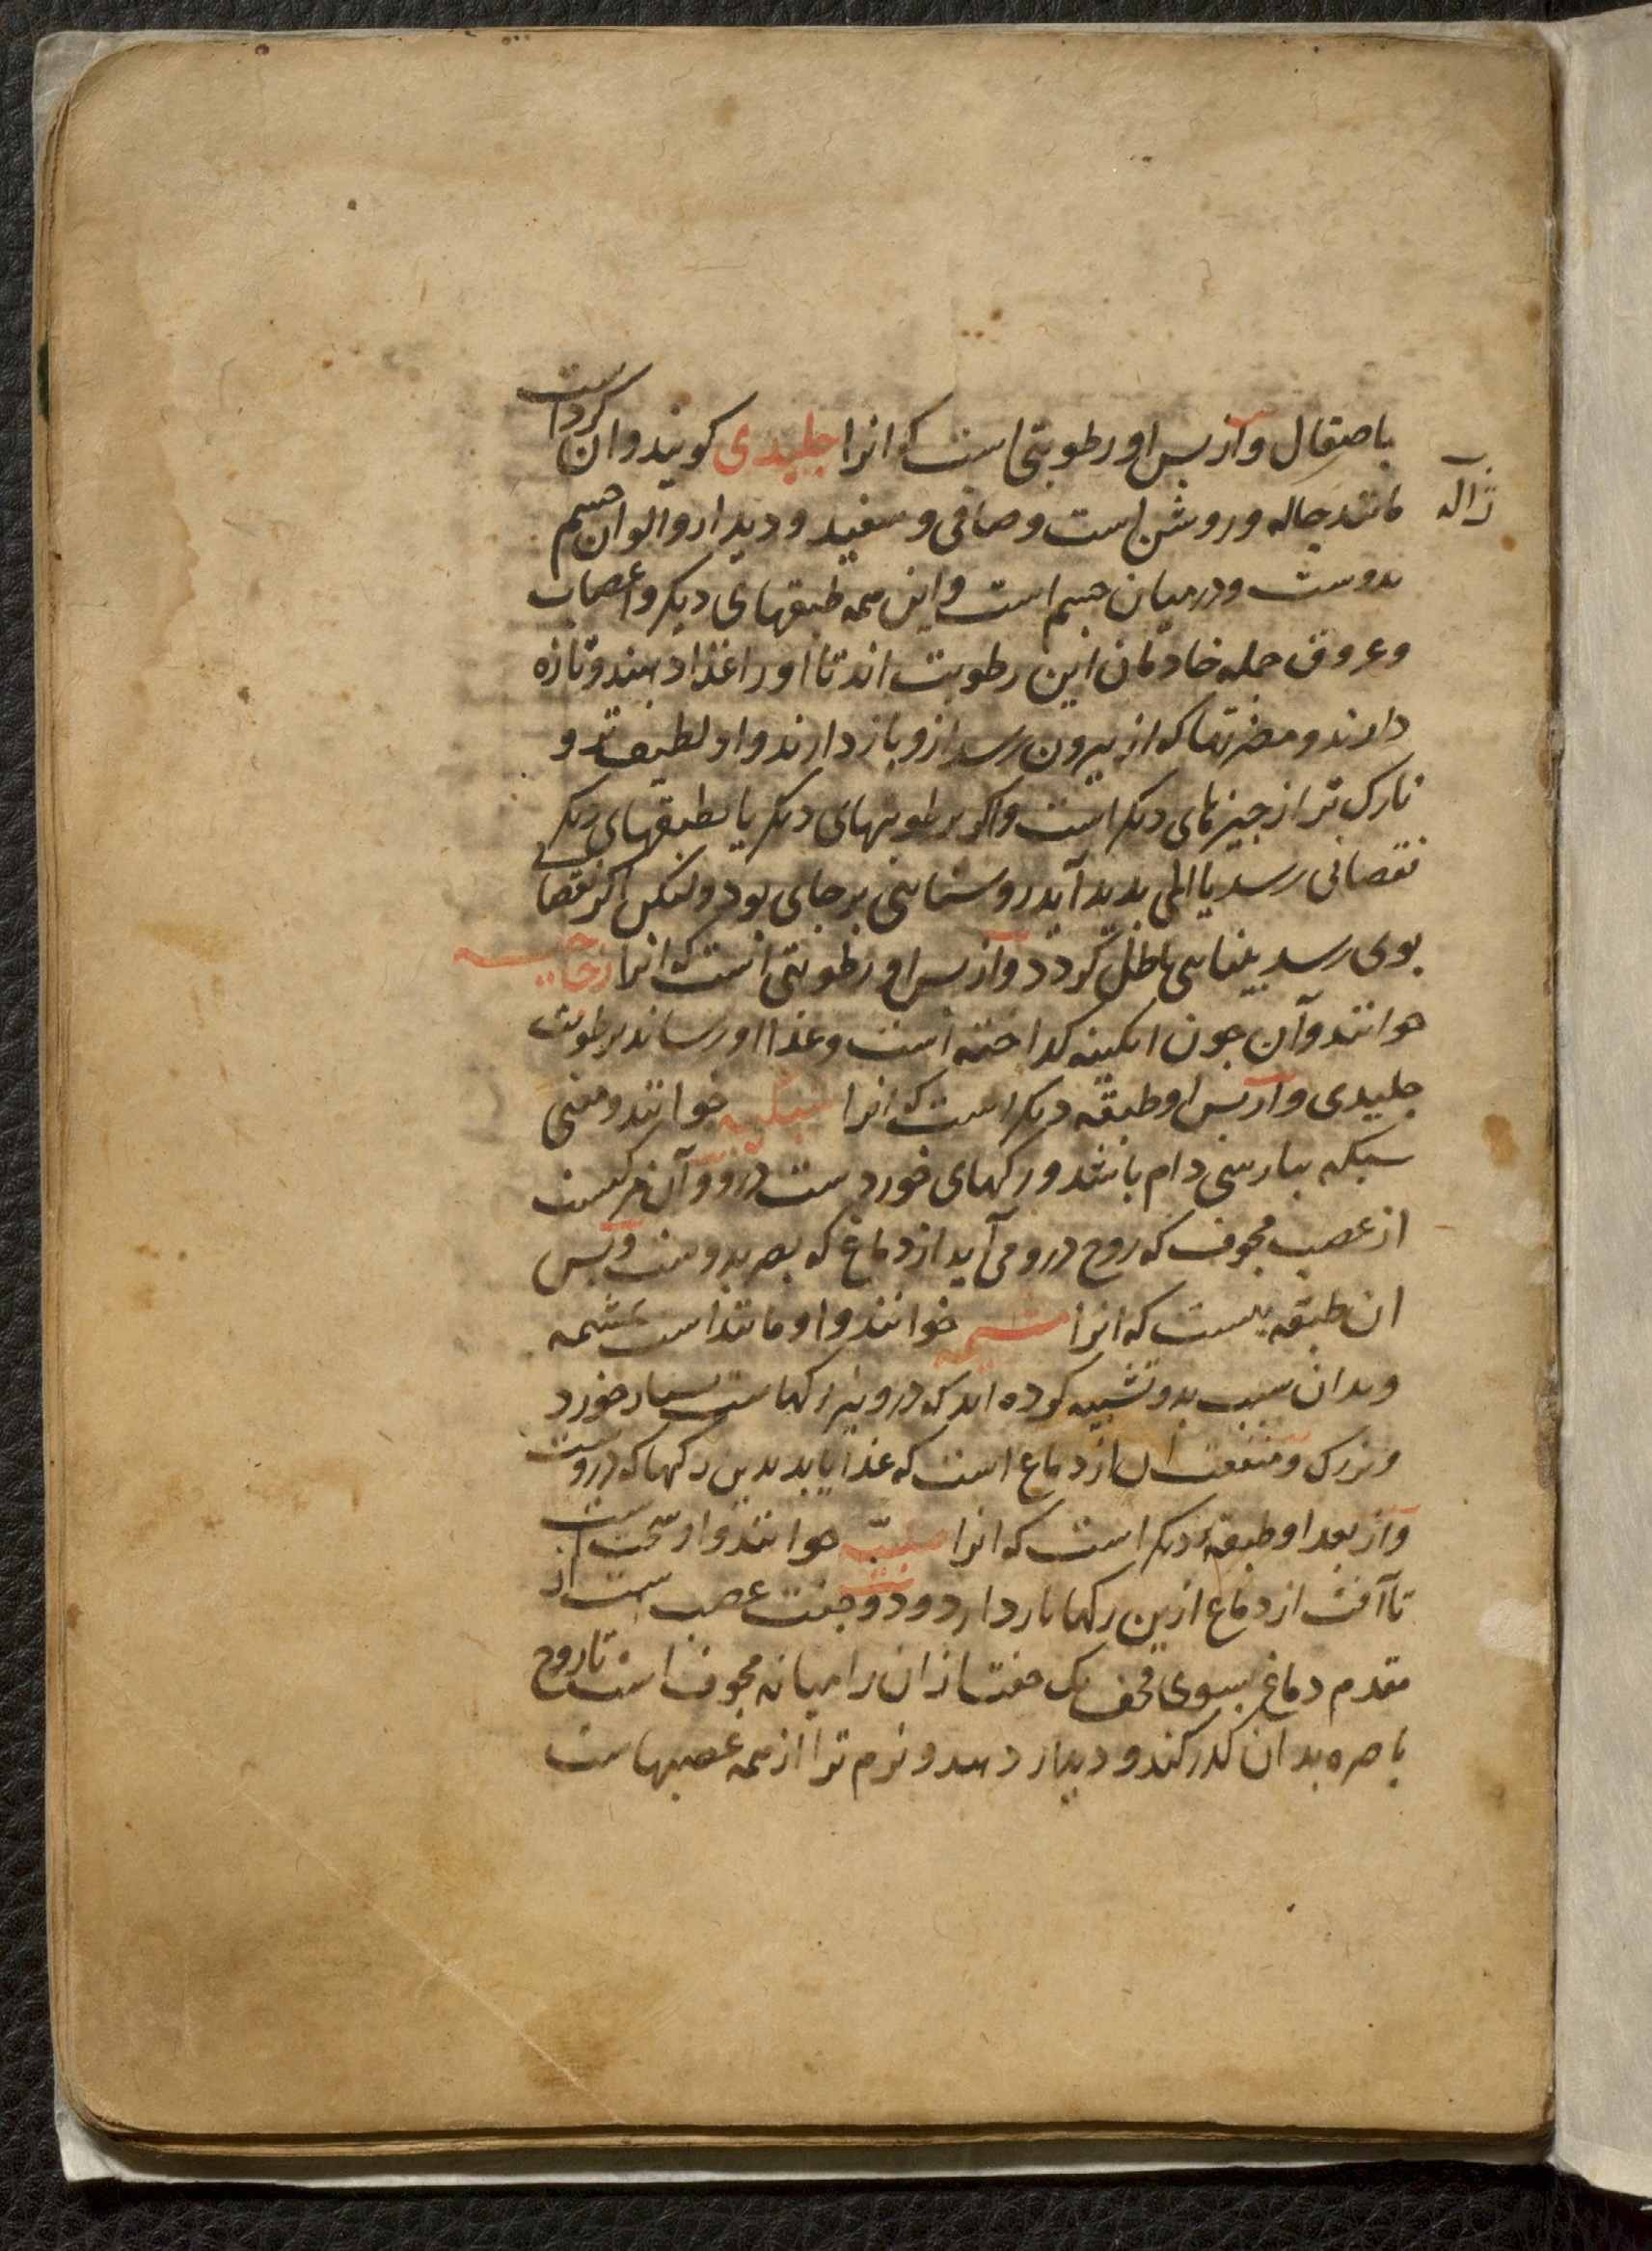 باصقال وازپس او رطوبتی است که انرا جلیدی کویند وان کرد است
مانند جاله و روشن است و صافی و سفید و دیدار والوان جسم
ژاله
بدوست و در میان جسم است و این همه طبقهای دیکر و اعصاب
و عروق جمله خادمان این رطوبت اند تا او را غذا دهند و تازه
دارند و مضرتها که از بیرون رسد ازو باز دارند و او لطیف تر و
نازک تر از چیزهای دیکر است واکر برطوبتهای دیکر یا بطبقهای دیکر
نقصانی رسد یا المی پدید آید روشنایی بر جای بود ولیکن اکر نقصانی
بوی رسد بینایی باطل کردد وازپس او رطوبتی است که انرا زجاجیه
خوانند وآن چون ابکینه کداخته است و غذا او رساند برطوبت
جلیدی وازپس او طبقه دیکر است که انرا شبکیه خوانند و معنی
شبکه بپارسی دام باشد و رکهای خورد ست درو و آن مرکبست
از عصب مجوف که روح درو می آید از دماغ که بصر بدوست وپس
ان طبقه یست که انرا مشیمه خوانند و او مانند است بمشیمه
و بدان سبب بدو تشبیه کرده اند که درو نیز رکهاست بسیار خورد
و بزرک و منفعت ان از دماغ است که غذا یابد بدین رکها که دروست
وازبعد او طبقه دیکر است که انرا صلبیّه خوانند و او سخت است
تا آفت از دماغ ازین رکها باز دارد و دو جفت عصب است از
مقدم دماغ بسوی قحف یک جفت ازان را میانه مجوف است تا روح
باصره بدان کذر کند و دیدار دهد و نرم تر از همه عصبهاست